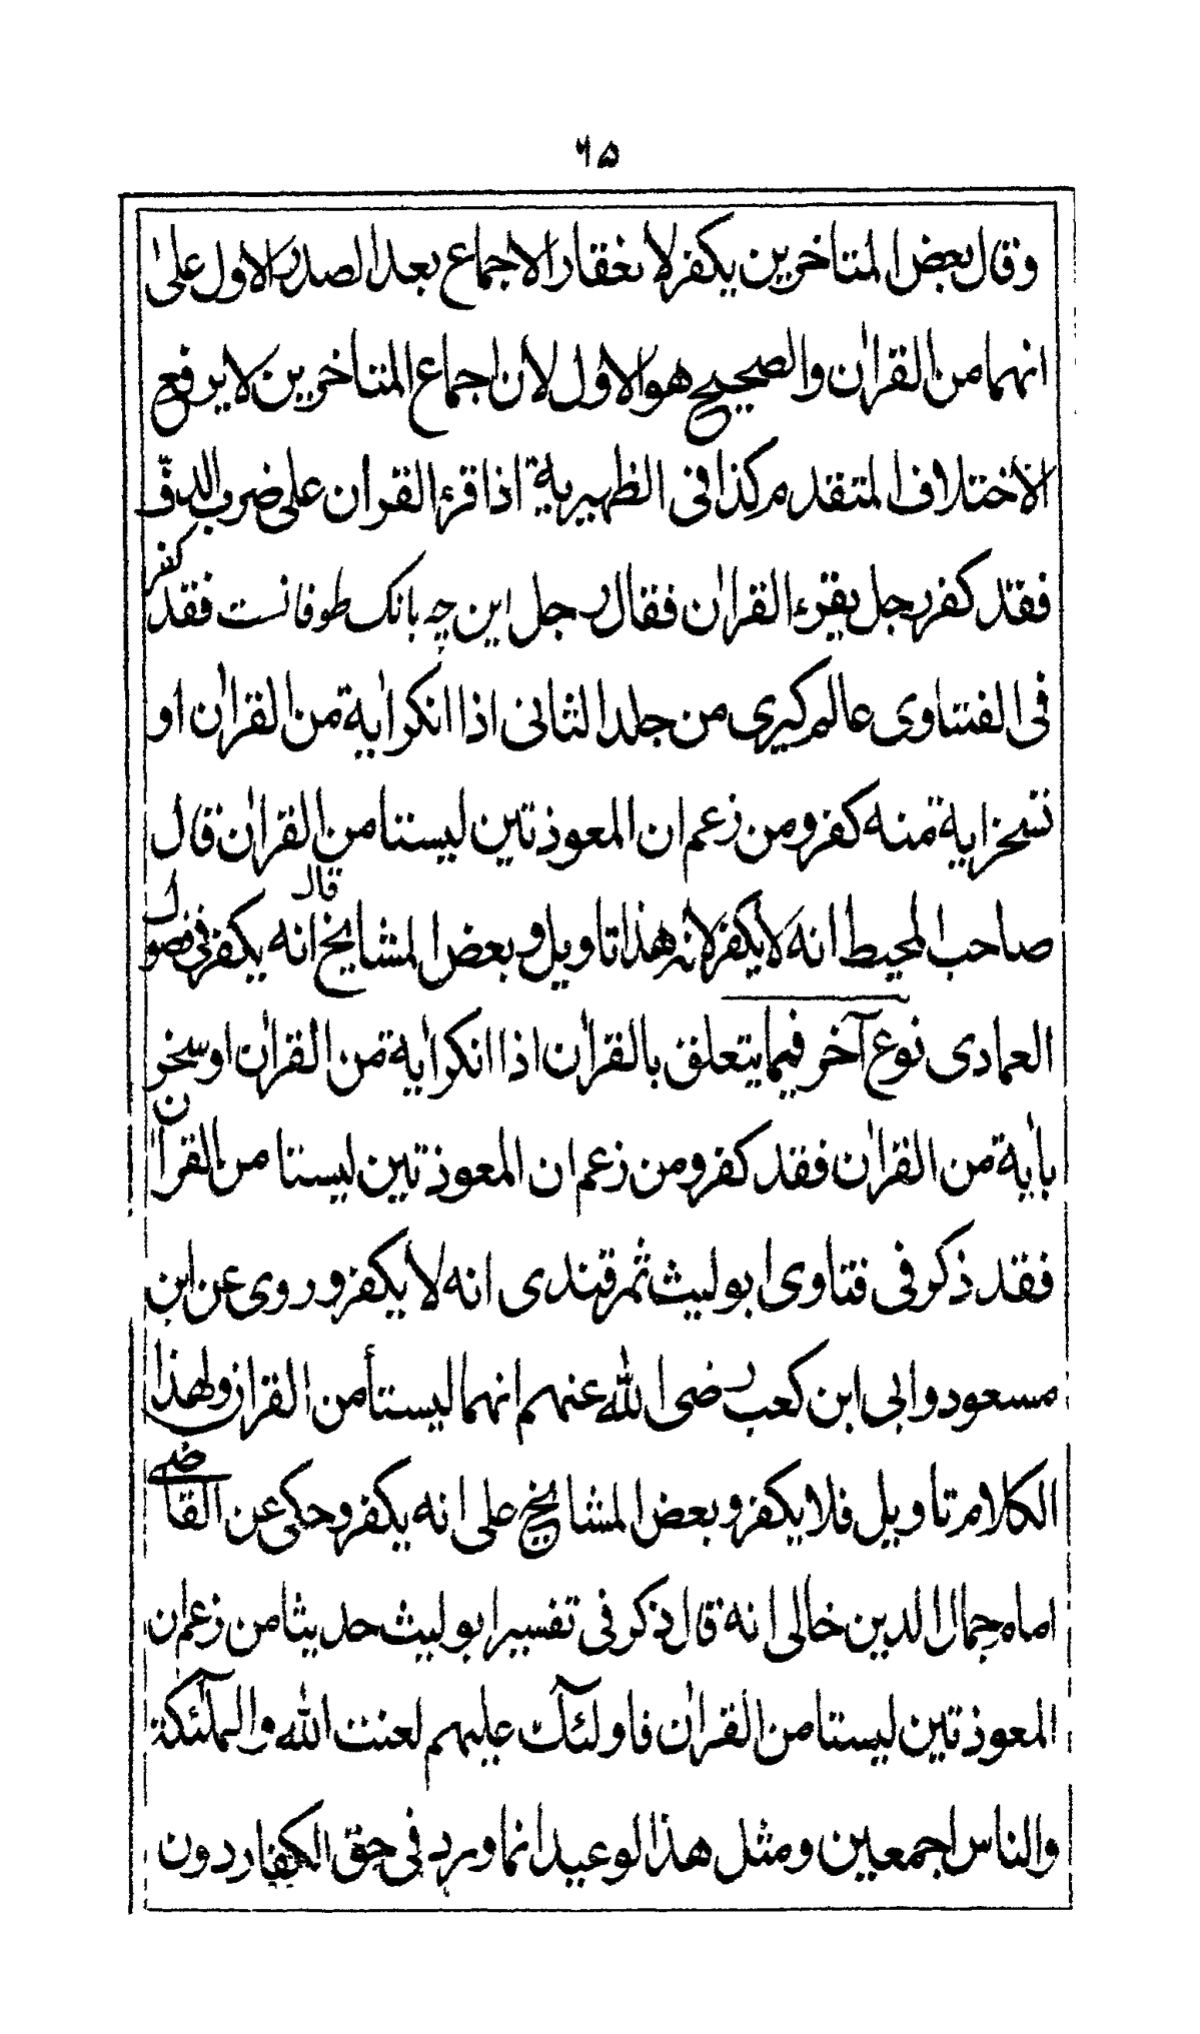 ٦٥
وقال بعض المتاخرين يكفر لانعقار الاجماع بعد الصدر الاول علىٰ
انهما من القرآن والصحيح هو الاول لان اجماع المتاخرين لا يرفع
الاختلاف المتقدم كذا فى الظهيرية اذا قرء القران على ضرب الدفّ
فقد كفر رجل يقرء القراٰن فقال رجل اين چه بانک طوفانست فقد كفر
فى الفتاوى عالم كيرى من جلد الثانى اذا انكر اٰية من القراٰن او
تسخر باية منه كفر ومن زعم ان المعوذتين ليستا من القراٰن قال
صاحب المحيط انه لا يكفر لانه هذا تاويل وبعض المشايخ قال انه يكفر فى فصول
العمادى نوع آخر فيما يتعلق بالقراٰن اذا انكر اٰية من القراٰن او سخر
باٰية من القراٰن فقد كفر ومن زعم ان المعوذتين ليستا من القراٰن
فقد ذكر فى فتاوى ابو ليث ثمرقندى انه لا يكفر وروى عن ابن
مسعود وابى ابن كعب رضى الله عنهم انهما ليستا من القران ولهذا
الكلام تاويل فلا يكفر وبعض المشايخ على انه يكفر وحكى عن القاضى
امام جمال الدين خالى انه قال ذكر فى تفسير ابو ليث حديثا من زعم ان
المعوذتين ليستا من القراٰن فاولئك عليهم لعنت الله والملٰئكة
والناس اجمعين ومثل هذا الوعيد انما ورد فى حق الكفار دون